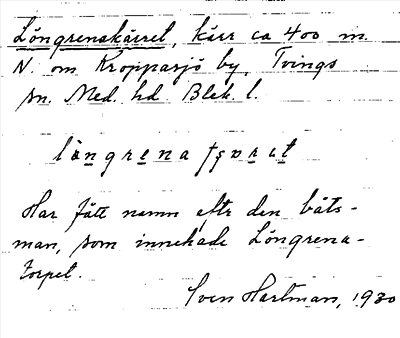 Löngrenakärret, kärr ca 400 m.
N. om Kroppasjö by, Tvings
sn. Med. hd Blek. l.
Har fått namn eftr den båts-
man, som innehade Löngrena-
torpet.
Sven Hartman, 1930